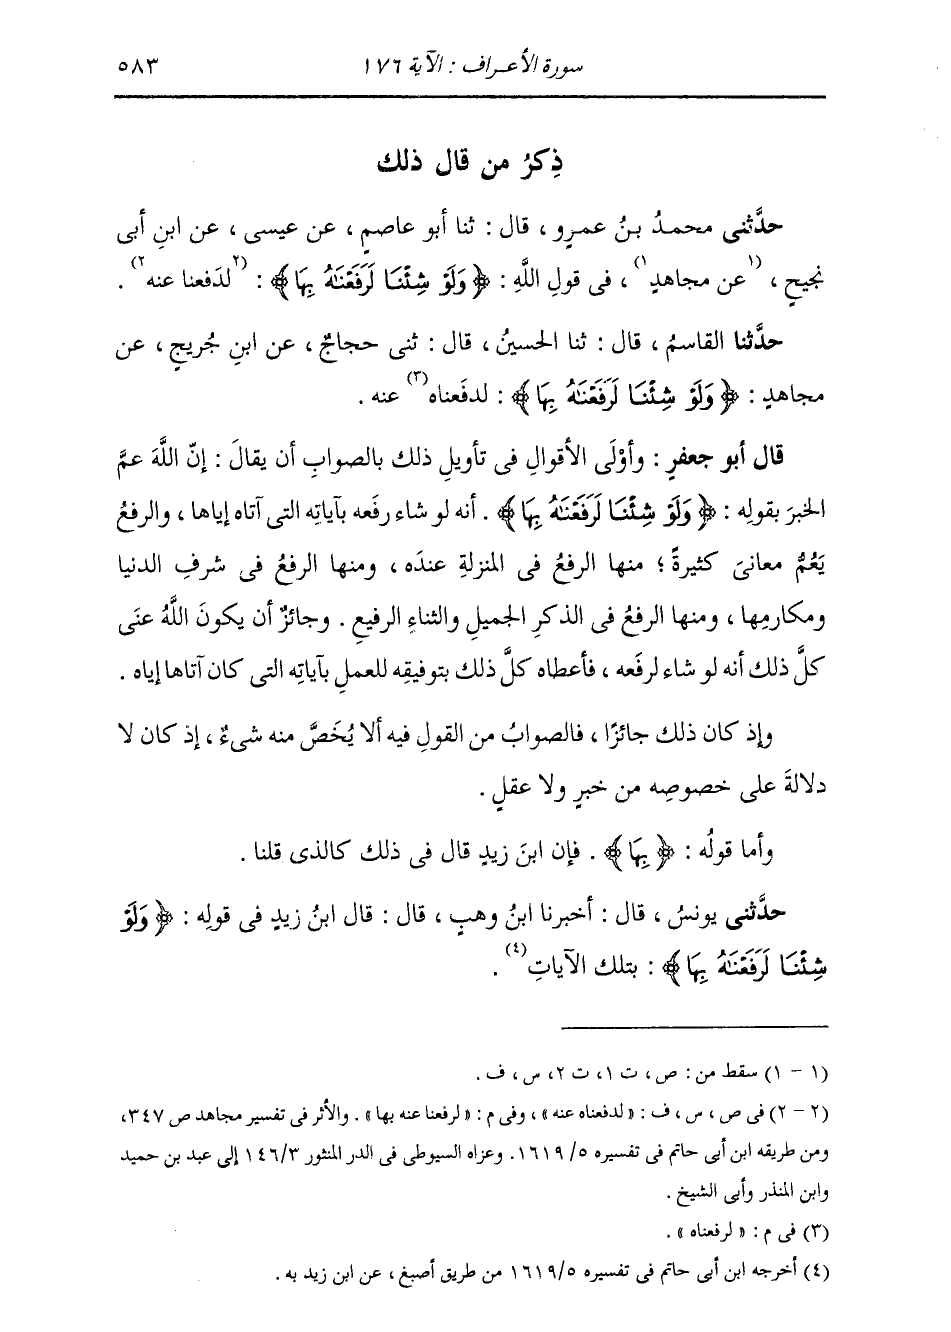 سورة الأعراف : الآية ١٧٦ ٥٨٣
ذِكرُ من قال ذلك
حدَّثنى محمدُ بنُ عمرٍو ، قال : ثنا أبو عاصمٍ ، عن عيسى ، عن ابنِ أبى
نجيحٍ ، (١عن مجاهدٍ١) ، فى قولِ اللَّهِ : ﴿ وَلَوْ شِئْنَا لَرَفَعْنَٰهُ بِهَا ﴾ : (٢لدَفعنا عنه٢) .
حدَّثنا القاسمُ ، قال : ثنا الحسينُ ، قال : ثنى حجاجٌ ، عن ابنِ جُريجٍ ، عن
مجاهدٍ : ﴿ وَلَوْ شِئْنَا لَرَفَعْنَٰهُ بِهَا ﴾ : لدفَعناه(٣) عنه .
قال أبو جعفرٍ : وأوْلَى الأقوالِ فى تأويلِ ذلك بالصوابِ أن يقالَ : إنّ اللَّهَ عمَّ
الخبرَ بقولِه : ﴿ وَلَوْ شِئْنَا لَرَفَعْنَٰهُ بِهَا ﴾ . أنه لو شاء رفَعه بآياتِه التى آتاه إياها ، والرفعُ
يَعُمُّ معانىَ كثيرةً ؛ منها الرفعُ فى المنزلةِ عندَه ، ومنها الرفعُ فى شرفِ الدنيا
ومكارمِها ، ومنها الرفعُ فى الذكرِ الجميلِ والثناءِ الرفيعِ . وجائزٌ أن يكونَ اللَّهُ عنَى
كلَّ ذلك أنه لو شاء لرفَعه ، فأعطاه كلَّ ذلك بتوفيقِه للعملِ بآياتِه التى كان آتاها إياه .
وإذ كان ذلك جائزًا ، فالصوابُ من القولِ فيه ألا يُخَصَّ منه شىءٌ ، إذ كان لا
دلالةَ على خصوصِه من خبرٍ ولا عقلٍ .
وأما قولُه : ﴿ بِهَا ﴾ . فإن ابنَ زيدٍ قال فى ذلك كالذى قلنا .
حدَّثنى يونسُ ، قال : أخبرنا ابنُ وهبٍ ، قال : قال ابنُ زيدٍ فى قولِه : ﴿ وَلَوْ
شِئْنَا لَرَفَعْنَٰهُ بِهَا ﴾ : بتلك الآياتِ(٤) .
(١ - ١) سقط من : ص ، ت ١، ت ٢، س ، ف .
(٢ - ٢) فى ص ، س ، ف : « لدفعناه عنه » ، وفى م : « لرفعنا عنه بها » . والأثر فى تفسير مجاهد ص ٣٤٧،
ومن طريقه ابن أبى حاتم فى تفسيره ٥/ ١٦١٩. وعزاه السيوطى فى الدر المنثور ١٤٦/٣ إلى عبد بن حميد
وابن المنذر وأبى الشيخ .
(٣) فى م : « لرفعناه » .
(٤) أخرجه ابن أبى حاتم فى تفسيره ١٦١٩/٥ من طريق أصبغ ، عن ابن زيد به .